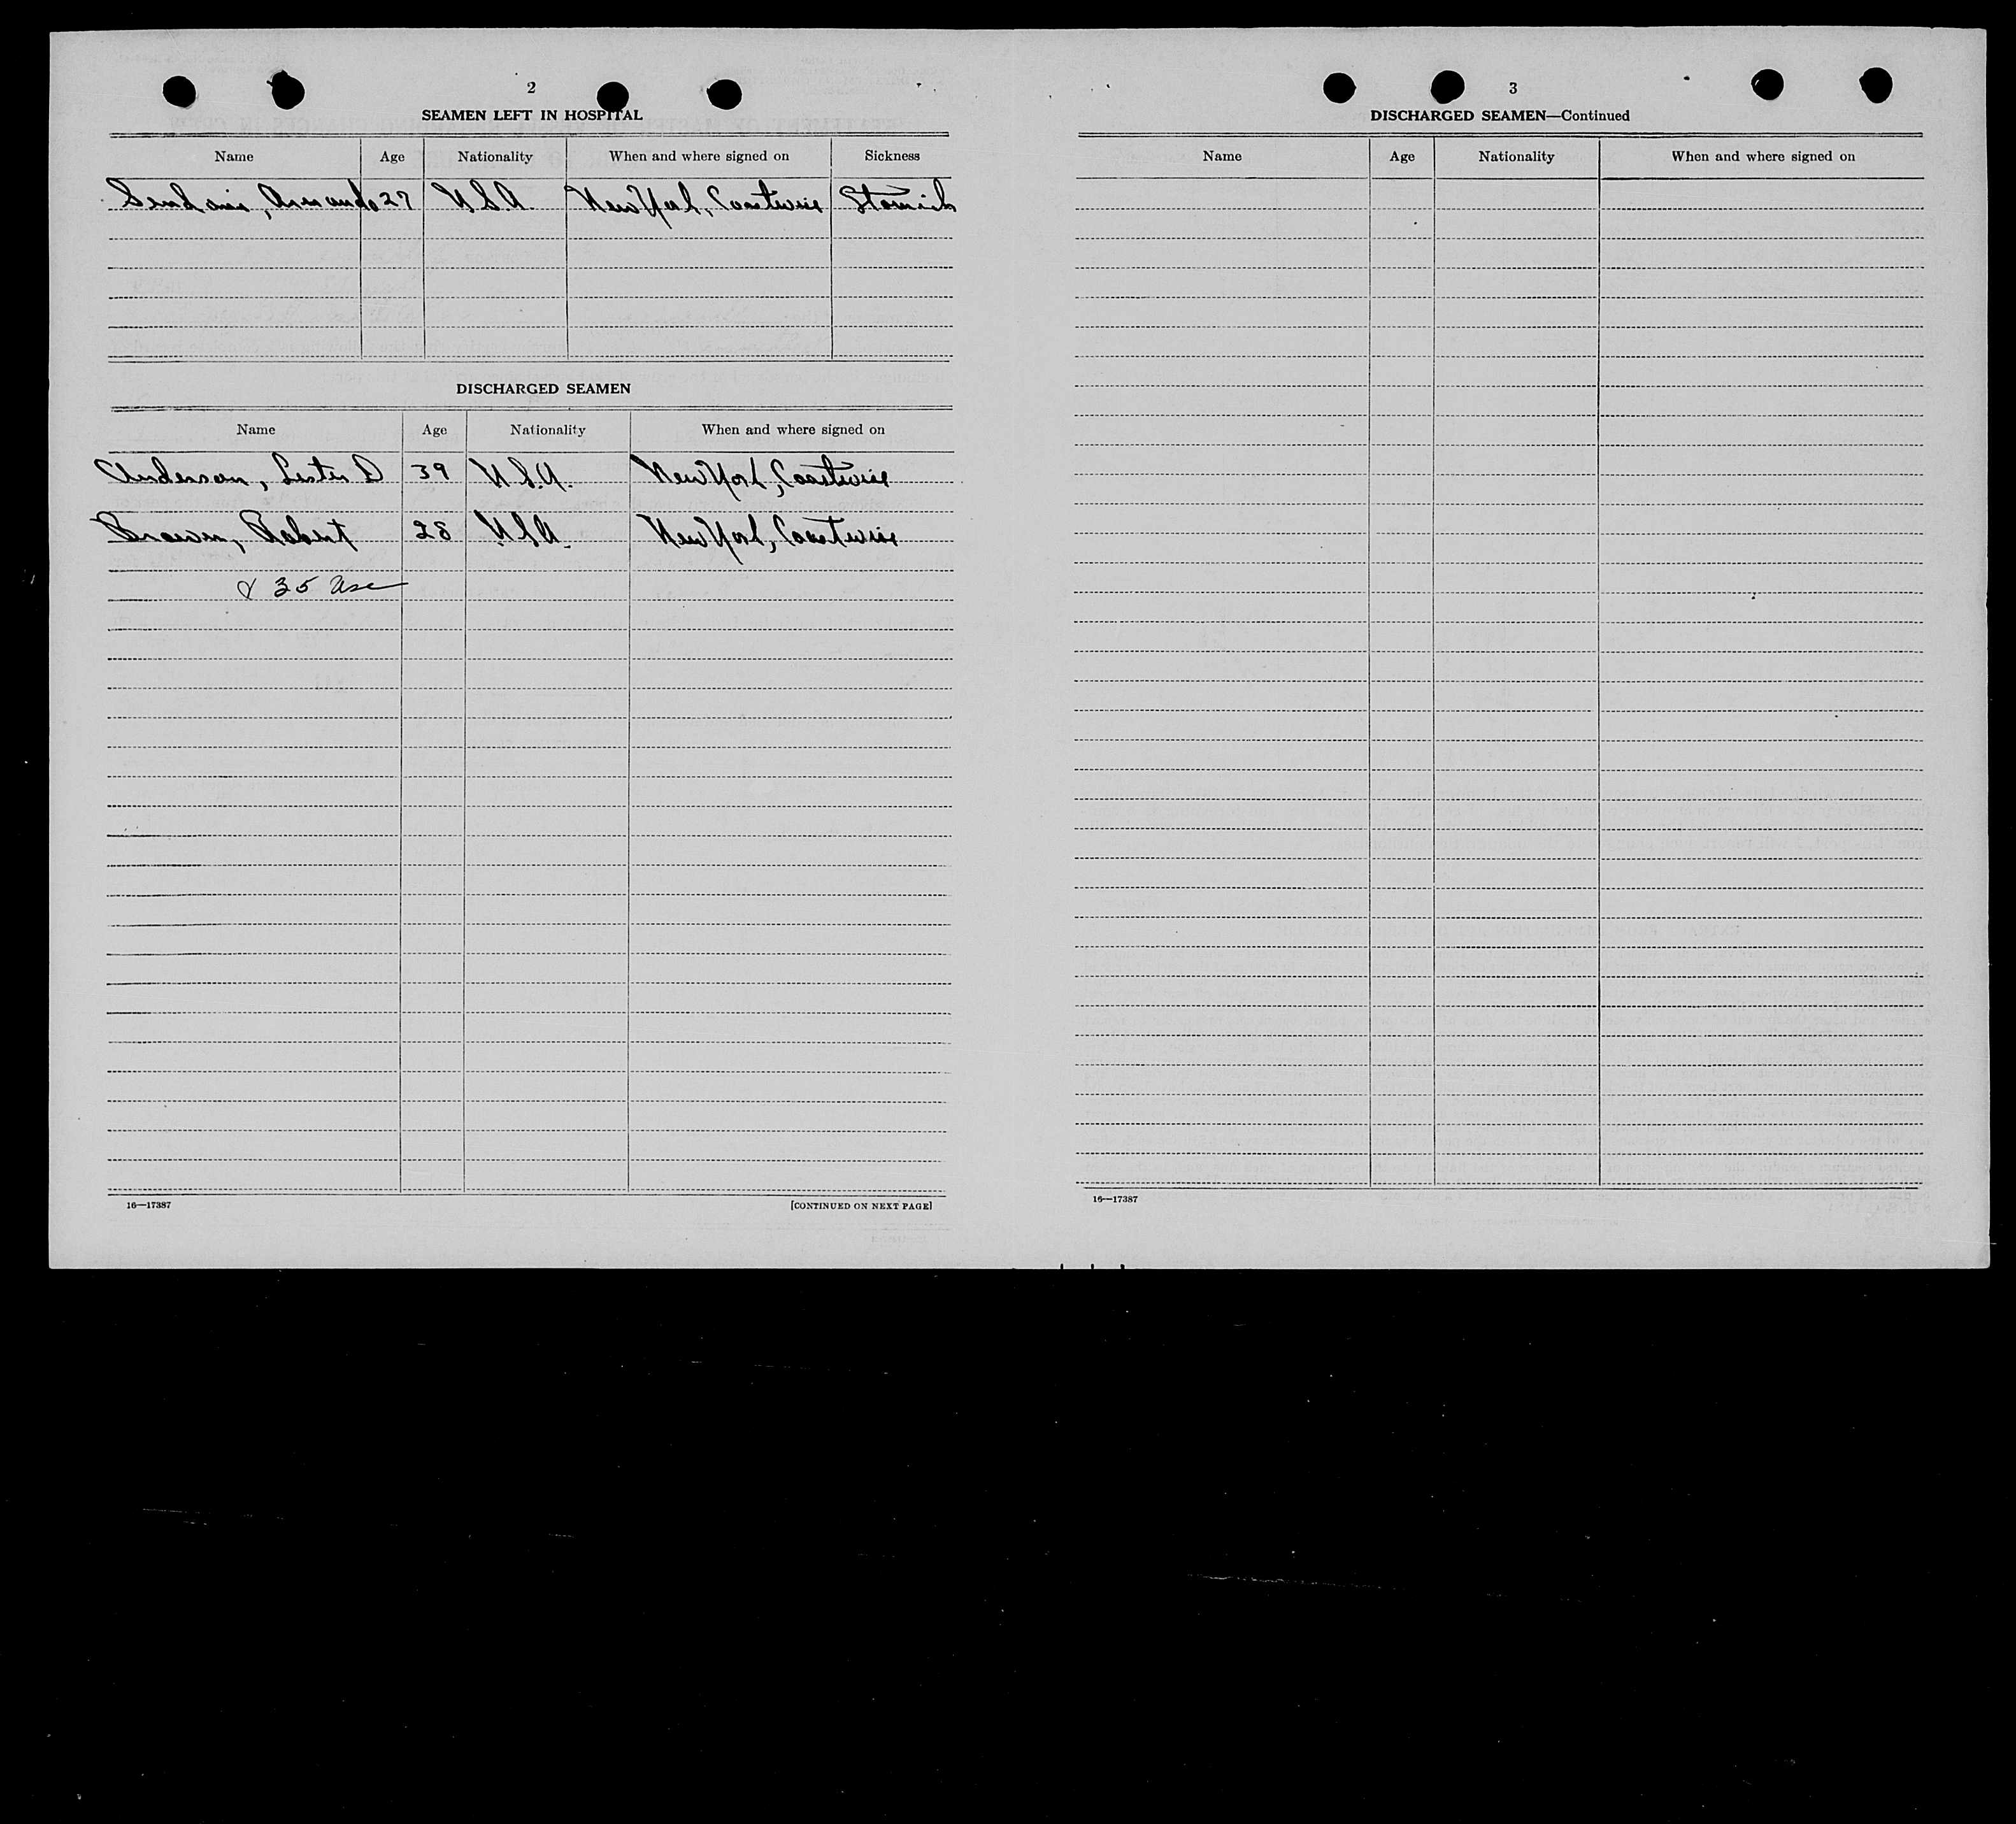 2
SEAMEN LEFT IN HOSPITAL
Name Age Nationality When and where signed on Sickness
Armando 27 U.S.A. New York, Coastwise Stomich
DISCHARGED SEAMEN
Name Age Nationality When and where signed on
Anderson, Lester D 39 U.S.A. New York, Coastwise
Brown, Robert 28 U.S.A. New York, Coastwise
& 35 Usc
16—17387 [CONTINUED ON NEXT PAGE]
3
DISCHARGED SEAMEN—Continued
Name Age Nationality When and where signed on
16—17387